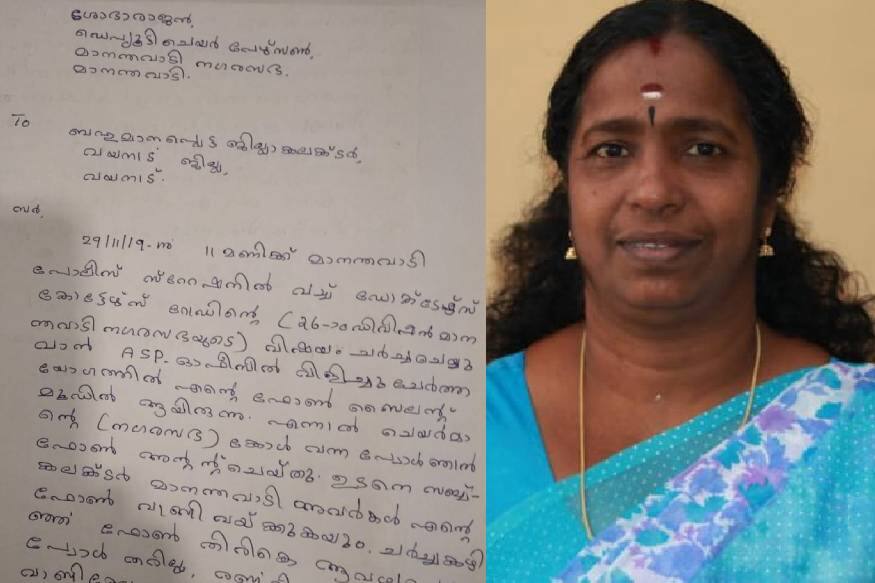 ശോഭാരാജൻ,
ഡെപ്യൂട്ടി ചെയർ പേഴ്സൺ,
മാനന്തവാടി നഗരസഭ,
മാനന്തവാടി.
To
ബഹുമാനപ്പെട്ട ജില്ലാ കലക്ടർ,
വയനാട് ജില്ല,
വയനാട്.
സർ,
29/11/19-ന് 11 മണിക്ക് മാനന്തവാടി
പോലീസ് സ്റ്റേഷനിൽ വച്ച് ഡോക്ടേഴ്സ്
കോട്ടേഴ്സ് റോഡിന്റെ (26-ാംഡിവിഷൻ മാന
ന്തവാടി നഗരസഭയുടെ) വിഷയം ചർച്ചചെയ്യു
വാൻ ASP-ഓഫീസിൽ വിളിച്ചുചേർത്ത
യോഗത്തിൽ എന്റെ ഫോൺ സൈലന്റ്
മൂഡിൽ ആയിരുന്നു. എന്നാൽ ചെയർമാ
ന്റെ (നഗരസഭ) കോൾ വന്നപ്പോൾ ഞാൻ
ഫോൺ അറ്റന്റ് ചെയ്തു. ഉടനെ സബ്ബ്-
കലക്ടർ മാനന്തവാടി അവർകൾ എന്റെ
ഫോൺ വാങ്ങി വയ്ക്കുകയും, ചർച്ചകഴി
ഞ്ഞ് ഫോൺ തിരികെ
പ്പോൾ തരില്ല,